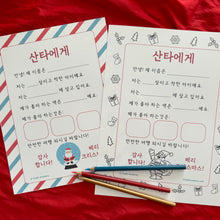 산타에게
안녕! 제 이름은
저는 살이고 착한 아이예요.
저는 에 살고 있어요.
제가 좋아 하는 색은 예요.
제가 좋아 하는것은
안전한 여행 되시길 바랍니다!
감사
합니다!
메리
크리스마스!
산타에게
안녕! 제 이름은
저는 살이고 착한 아이예요.
저는 에 살고 있어요.
제가 좋아 하는 색은 예요.
제가 좋아 하는것은
안전한 여행 되시길 바랍니다!
감사
합니다!